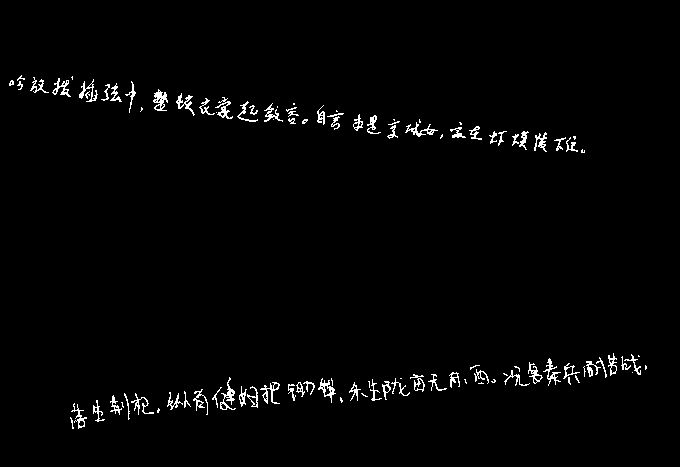 吟放拨插弦中，整顿衣裳起敛容。自言本是京城女，家在虾蟆陵下住。
落生荆杞。纵有健妇把锄犁，禾生陇亩无东西。况复秦兵耐苦战，